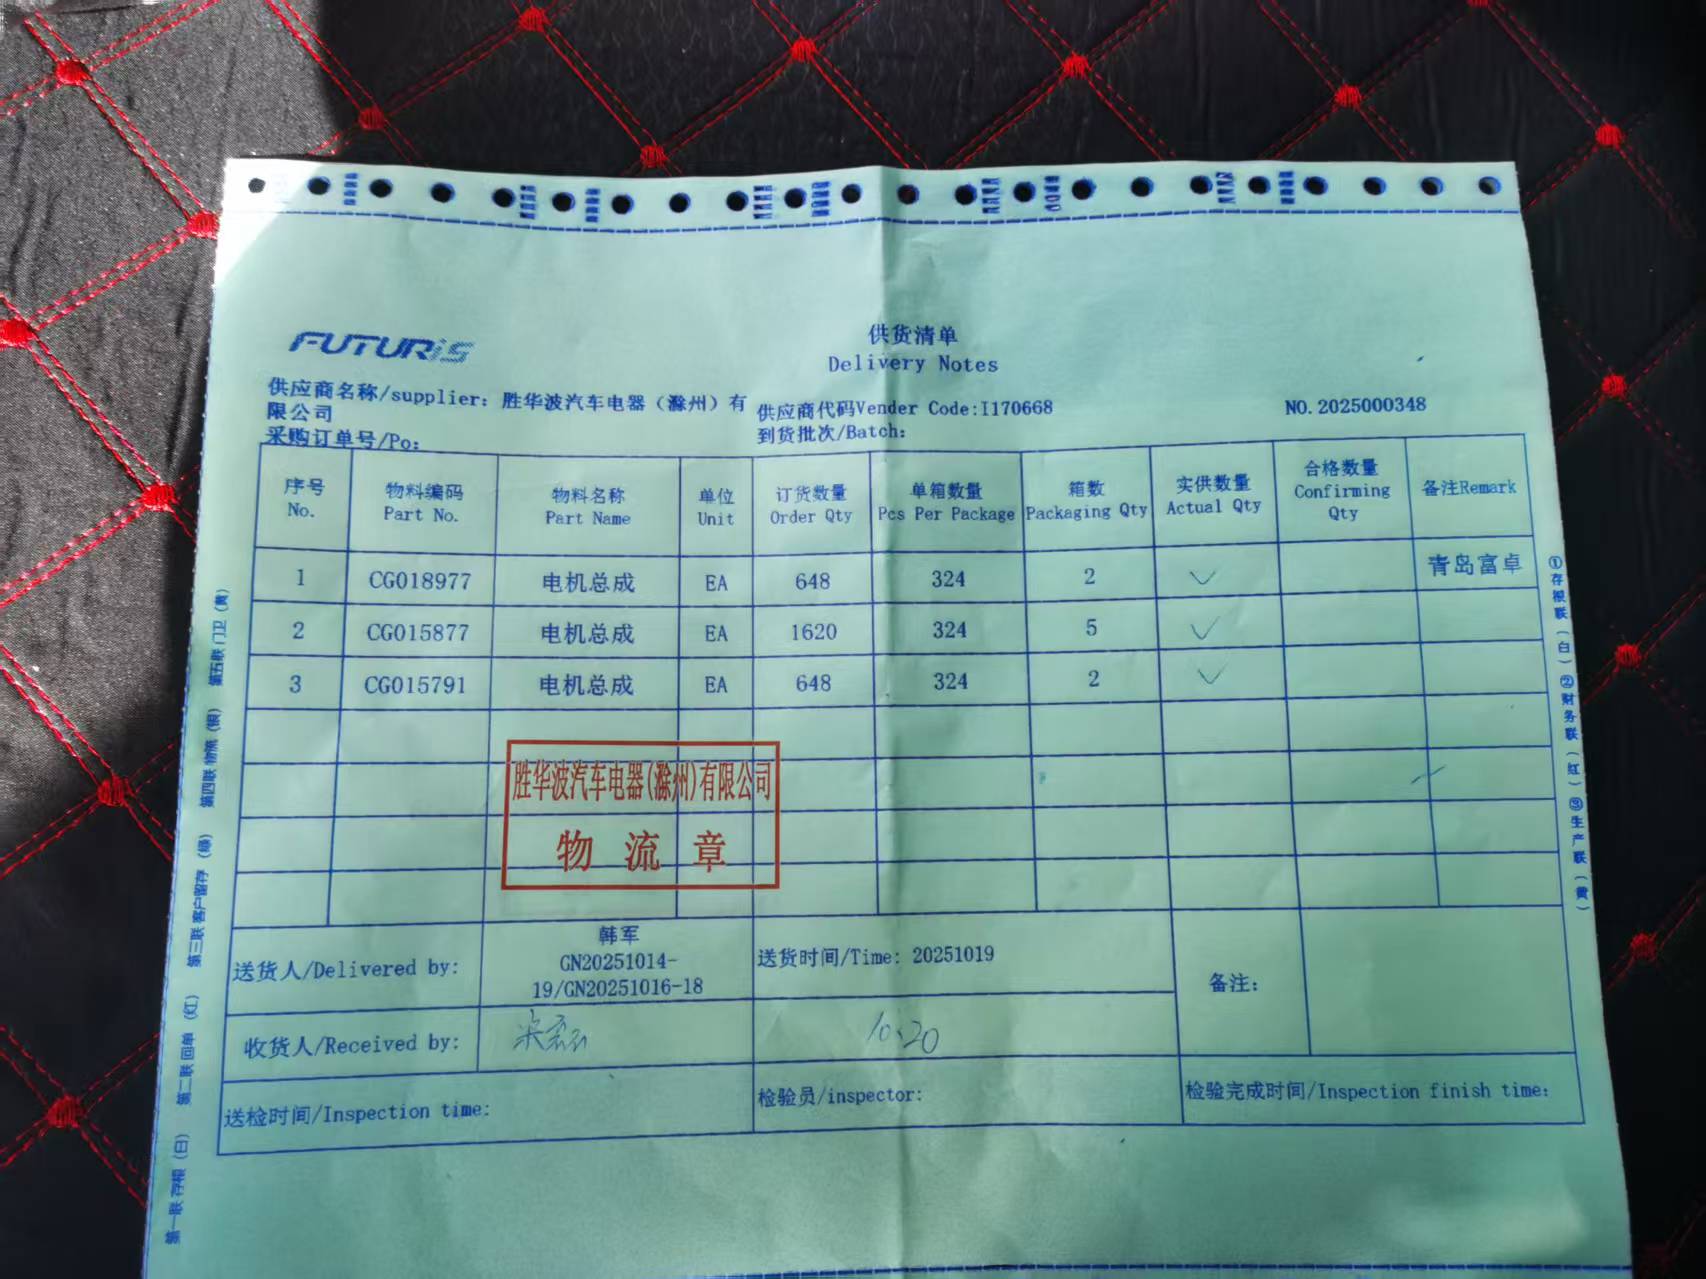 FUTURiS
供货清单
Delivery Notes
供应商名称/supplier: 胜华波汽车电器（滁州）有
限公司
供应商代码Vender Code:I170668
NO.2025000348
采购订单号/Po:
到货批次/Batch:
序号 物料编码 物料名称 单位 订货数量 单箱数量 箱数 实供数量 合格数量 备注Remark
No. Part No. Part Name Unit Order Qty Pcs Per Package Packaging Qty Actual Qty Confirming Qty
1 CG018977 电机总成 EA 648 324 2 ✓ 青岛富卓
2 CG015877 电机总成 EA 1620 324 5 ✓
3 CG015791 电机总成 EA 648 324 2 ✓
胜华波汽车电器(滁州)有限公司
物流章
送货人/Delivered by:
韩军
GN20251014-
19/GN20251016-18
送货时间/Time: 20251019
备注:
收货人/Received by:
10.20
送检时间/Inspection time:
检验员/inspector:
检验完成时间/Inspection finish time:
第一联 存根（白） 第二联 回单（红） 第三联 客户留存（绿） 第四联 物流（银） 第五联 门卫（黄）
①存根联（白）②财务联（红）③生产联（黄）